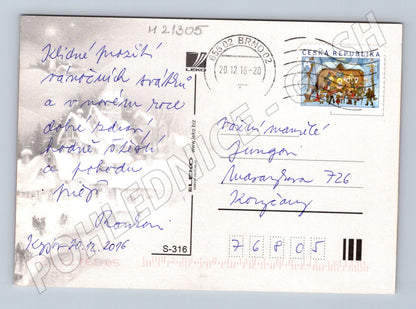 H 21305
Klidné prožití
vánočních svátků
a v novém roce
dobré zdraví
hodně štěstí
a pohodu
přejí
Kyjov 20.12.2016
LEKO
ELEKO
www.leko.biz
S-316
656 02 BRNO 02
20.12.16-20
ČESKÁ REPUBLIKA
Vážení manželé
Jungovi
726
Koryčany
76805
POHLEDNICE - CASH